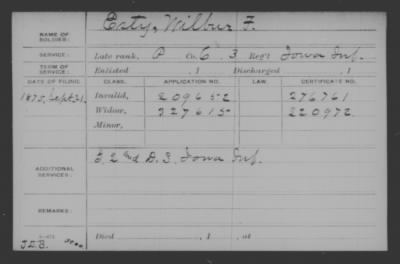 NAME OF SOLDIER: Esty, Wilbur F.
SERVICE: Late rank, P Co. C. 3 Reg't Iowa Inf.
TERM OF SERVICE: Enlisted , 1 Discharged , 1
DATE OF FILING. CLASS. APPLICATION NO. LAW. CERTIFICATE NO.
1875, Sept. 21. Invalid, 209652 276761
Widow, 327615 220972
Minor,
ADDITIONAL SERVICES: 2nd D. 3. Iowa Inf.
REMARKS:
J.E.B. Died , 1 , at